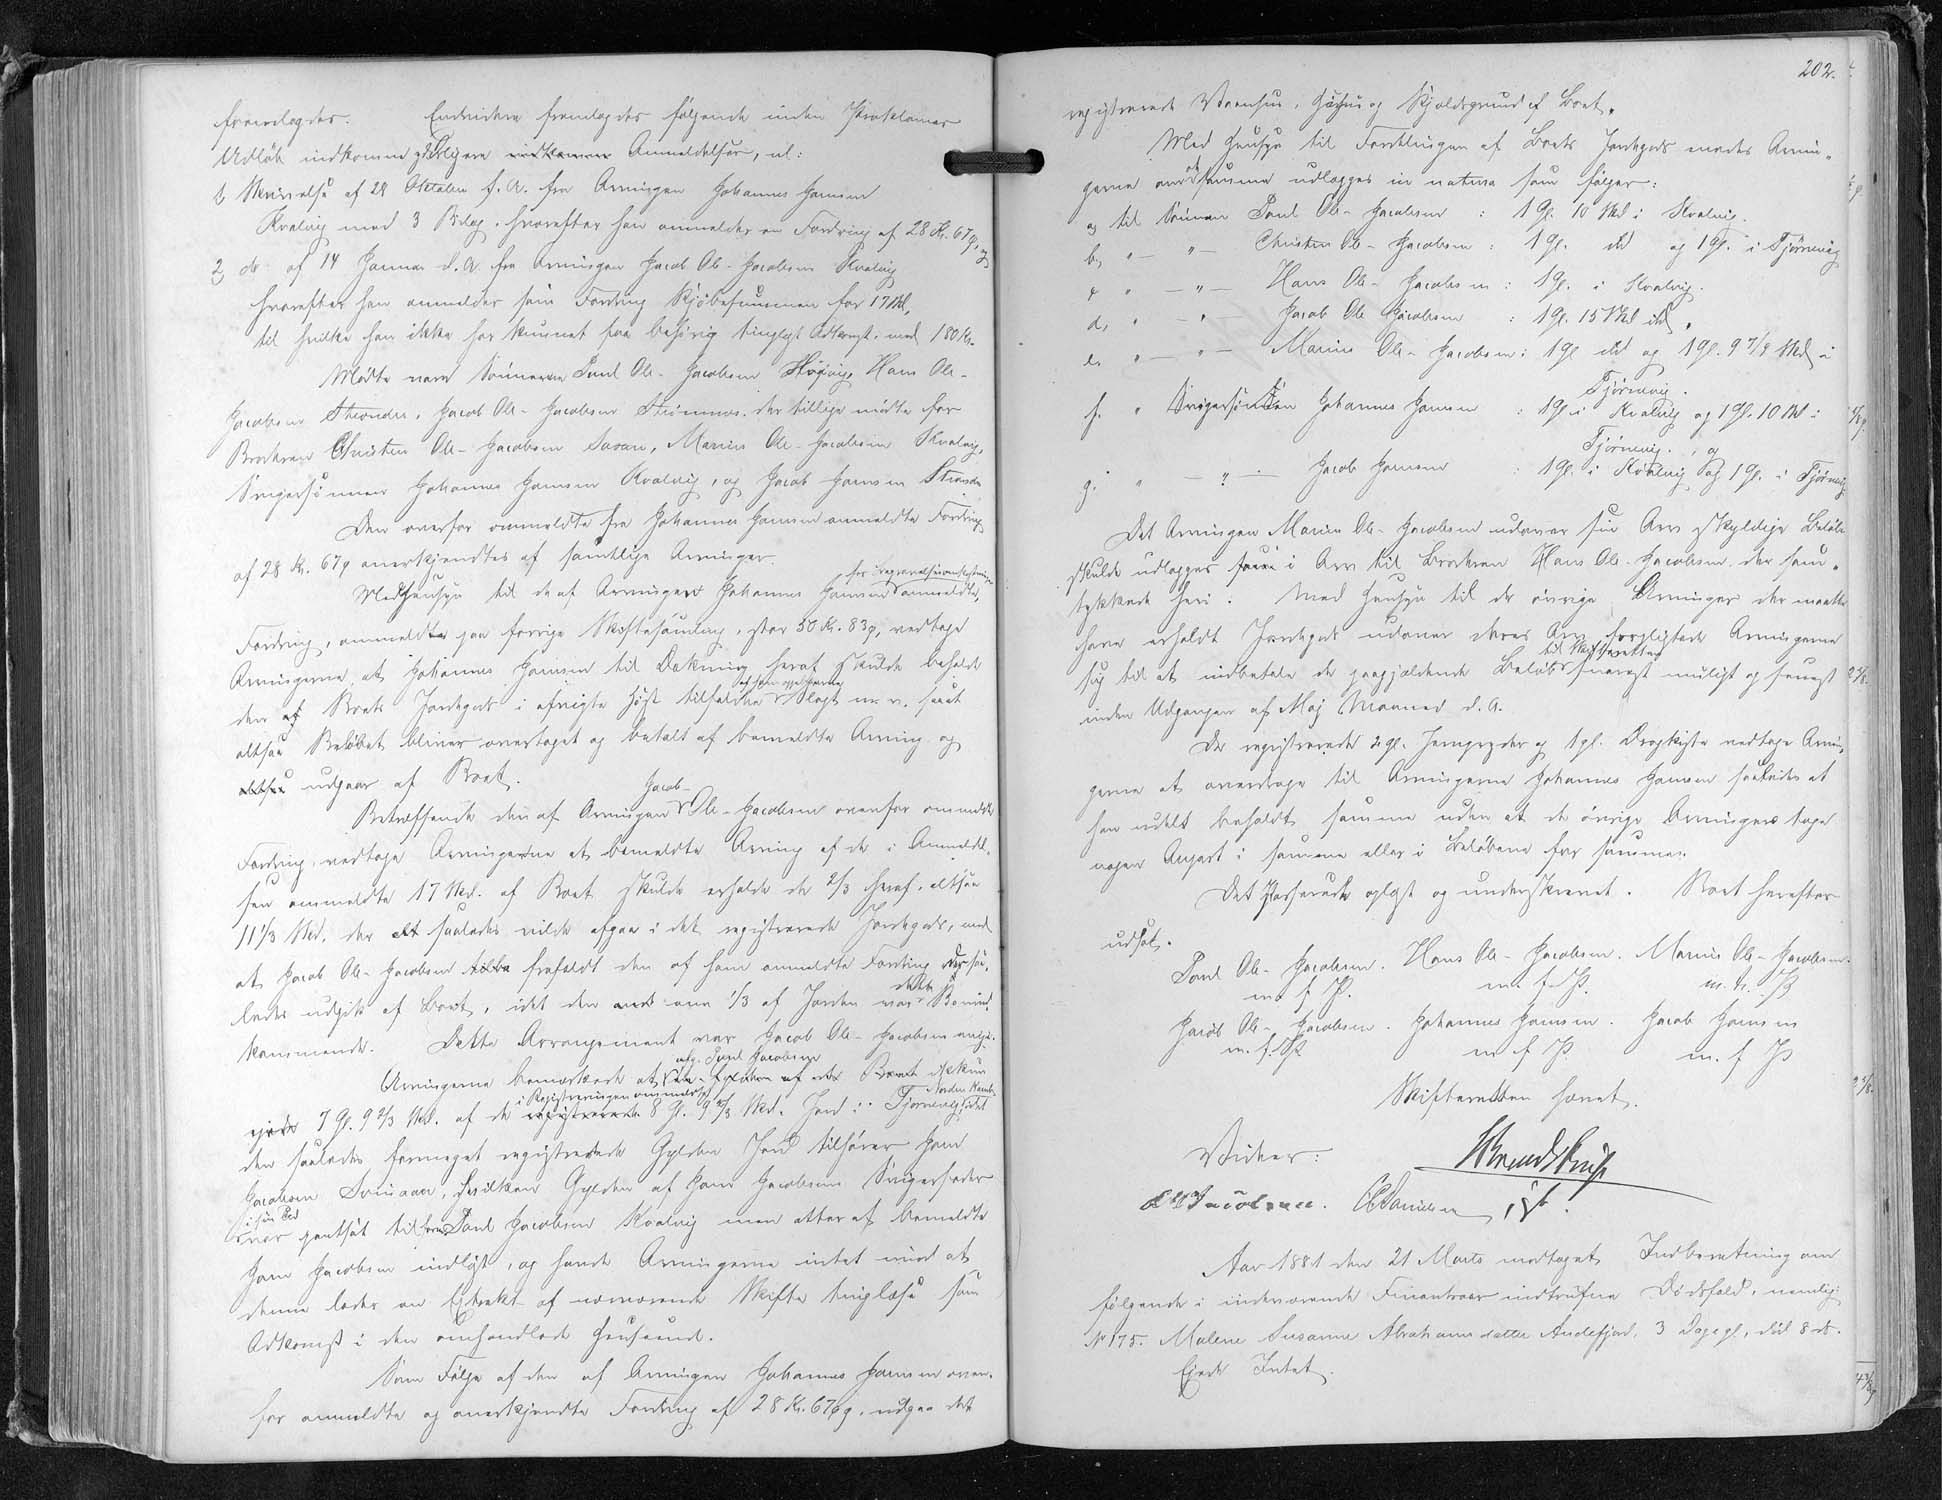 fremlagdes. Endvidere fremlagdes følgende inden Proklamas
Udløb indkomne yderligere indkomne Anmeldelser, nl:
1, Skrivelse af 28 Oktober f. A. fra Arvingen Johannes Hansen
Kvalvig med 3 Bilag, hvorefter han anmelder en Fordring af 28 Kr. 67 ø, og
2, do af 14 Januar d. A. fra Arvingen Jacob Ole-Jacobsen Kvalvig
hvorefter han anmelder som Fordring Kjøbesummen for 17 Skd,
til hvilke han ikke har kunnet faa behørig tinglyst Adkomst, med 180 Kr.
Mødte vare Sønnerne Poul Ole-Jacobsen Kvalvig, Hans Ole-
Jacobsen Strender, Jacob Ole-Jacobsen Strømnæs, der tillige mødte for
Brodren Christen Ole-Jacobsen Saxen, Marius Ole-Jacobsen Kvalvig,
Svigersønnen Johannes Hansen Kvalvig, og Jacob Hansen Strender
Den ovenfor anmeldte fra Johannes Hansen anmeldte Fordring
af 28 Kr. 67 ø anerkjendtes af samtlige Arvinger.
Med Hensyn til de af Arvingen Johannes Hansen anmeldte,
Fordring, anmeldte paa forrige Skiftesamling, stor 50 Kr. 83 ø, vedtoge
Arvingerne, at Johannes Hansen til Dækning heraf skulde beholde
den af Boets Jordegods i afvigte Høst tilfaldne Slagt m. v. samt
altsaa Beløbet bliver overtaget og betalt af bemeldte Arving og
altsaa udgaar af Boet.
Jacob-
Betræffende den af Arvingen Ole-Jacobsen ovenfor anmeldte
Fordring, vedtoge Arvingerne at bemeldte Arving af de i Anmeldel-
sen anmeldte 17 Skd. af Boet skulde erholde de 2/3 heraf, altsaa
11 1/3 Skd. der alt saaledes vilde afgaa i det registrerede Jordegods, med
at Jacob Ole-Jacobsen frafaldt den af ham anmeldte Fordring, der saa-
ledes udgik af Boet, idet den 1/3 af Jorden var dette Bo ved-
kommende. Dette Arrangement var Jacob Ole-Jacobsen
afg. Poul Jacobsen
Arvingerne bemærkede at Boet
i Registreringen anmeldte Norden Kambs
7 Gl. 9 2/3 Skd. af de registrerede 8 Gl. 9 2/3 Skd. Jord i Tjørnevig, idet
den saaledes formeget registrerede Gylden Jord tilhører Hans
Jacobsen Sviinaaer, hvilken Gylden af Hans Jacobsens Svigerfader
i sin Tid
var pantsat til Poul Jacobsen Kvalvig men atter af bemeldte
Hans Jacobsen indløst, og havde Arvingerne intet imod at
denne lader en Extrakt af nærværende Skifte tinglæse som
Adkomst i den omhandlede Henseende.
Som Følge af den af Arvingen Johannes Hansen oven-
for anmeldte og anerkjendte Fordring af 28 Kr. 67 ø, udgaa det
202.
registrerede Vaanhus, Hjehus og Kjældsgrund af Boet.
Med Hensyn til Fordelingen af Boets Jordegods enedes Arvin-
gerne om at samme udlægges in natura som følger:
a, til Sønnen Poul Ole-Jacobsen : 1 Gl. 10 Skd i Kvalvig.
b, " — " — Christen Ole-Jacobsen : 1 Gl. ibd og 1 Gl. i Tjørnevig
c, " — " — Hans Ole-Jacobsen : 1 Gl. i Kvalvig.
d, " — " — Jacob Ole Jacobsen : 1 Gl. 15 Skd ibd,
e, " — " — Marius Ole-Jacobsen : 1 Gl ibd og 1 Gl. 9 7/8 Skd i
Tjørnevig.
f. " Svigersønnen Johannes Hansen : 1 Gl i Kvalvig og 1 Gl. 10 Skd i
Tjørnevig, og
g. " — " — Jacob Hansen : 1 Gl. i Kvalvig og 1 Gl. i Tjørnevig
Det Arvingen Marius Ole-Jacobsen udover sin Arv skyldige Beløb
skulde udlægges i Arv til Brodren Hans Ole-Jacobsen, der sam-
tykkede heri. Med Hensyn til de øvrige Arvinger der maatte
have erholdt Jordegods udover deres Arv forpligtede Arvingerne
til Skifteretten
sig til at indbetale de paagjældende Beløb snarest muligt og senest
inden Udgangen af Maj Maaned d. A.
De registrerede 2 gl. Jerngryder og 1 gl. Dragkiste vedtoge Arvin-
gerne at overdrage til Arvingerne Johannes Hansen saaledes at
han udelt beholdt samme uden at de øvrige Arvinger toge
nogen Anpart i samme eller i Beløbene for samme.
Det Passerede oplæst og underskrevet. Boet herefter
udsat.
Poul Ole-Jacobsen. Hans Ole-Jacobsen. Marius Ole-Jacobsen.
m. f. P. m. f. P. m. f. P
Jacob Ole-Jacobsen. Johannes Hansen. Jacob Hansen
m. f. P. m f P. m. f P
Skifteretten hævet.
Vidner:
Jacobsen. Danielsen
Aar 1881 den 21 Marts modtaget Indberetning om
følgende i indeværende Finantsaar indtrufne Dødsfald, nemlig:
No 175. Malene Susanne Abrahamsdatter Andefjord, 3 Dage gl, død 8 ds.
Ejede Intet.